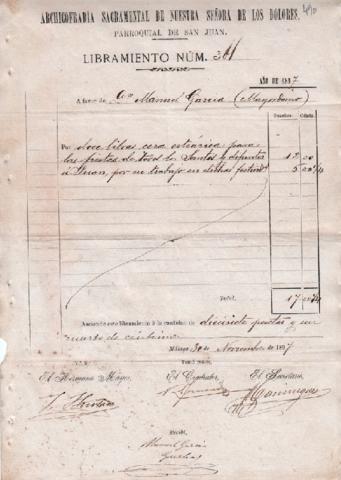 ARCHICOFRADÍA SACRAMENTAL DE NUESTRA SEÑORA DE LOS DOLORES.
PARROQUIAL DE SAN JUAN.
LIBRAMIENTO NÚM.
AÑO DE 1897
A favor de Dn Manuel Garcia (Mayordomo)
Pesetas Cénts.
Por doce libras cera para
las fiestas de todos los Santos y difuntos 12 00
a Juan, por su trabajo en dichas 5
Total 17
Asciende este libramiento á la cantidad de diecisiete pesetas y un
cuarto de céntimo
Málaga 30 de Noviembre de 1897
El Hermano Mayor, El Contador, El Secretario,
Recibí,
Manuel Garcia